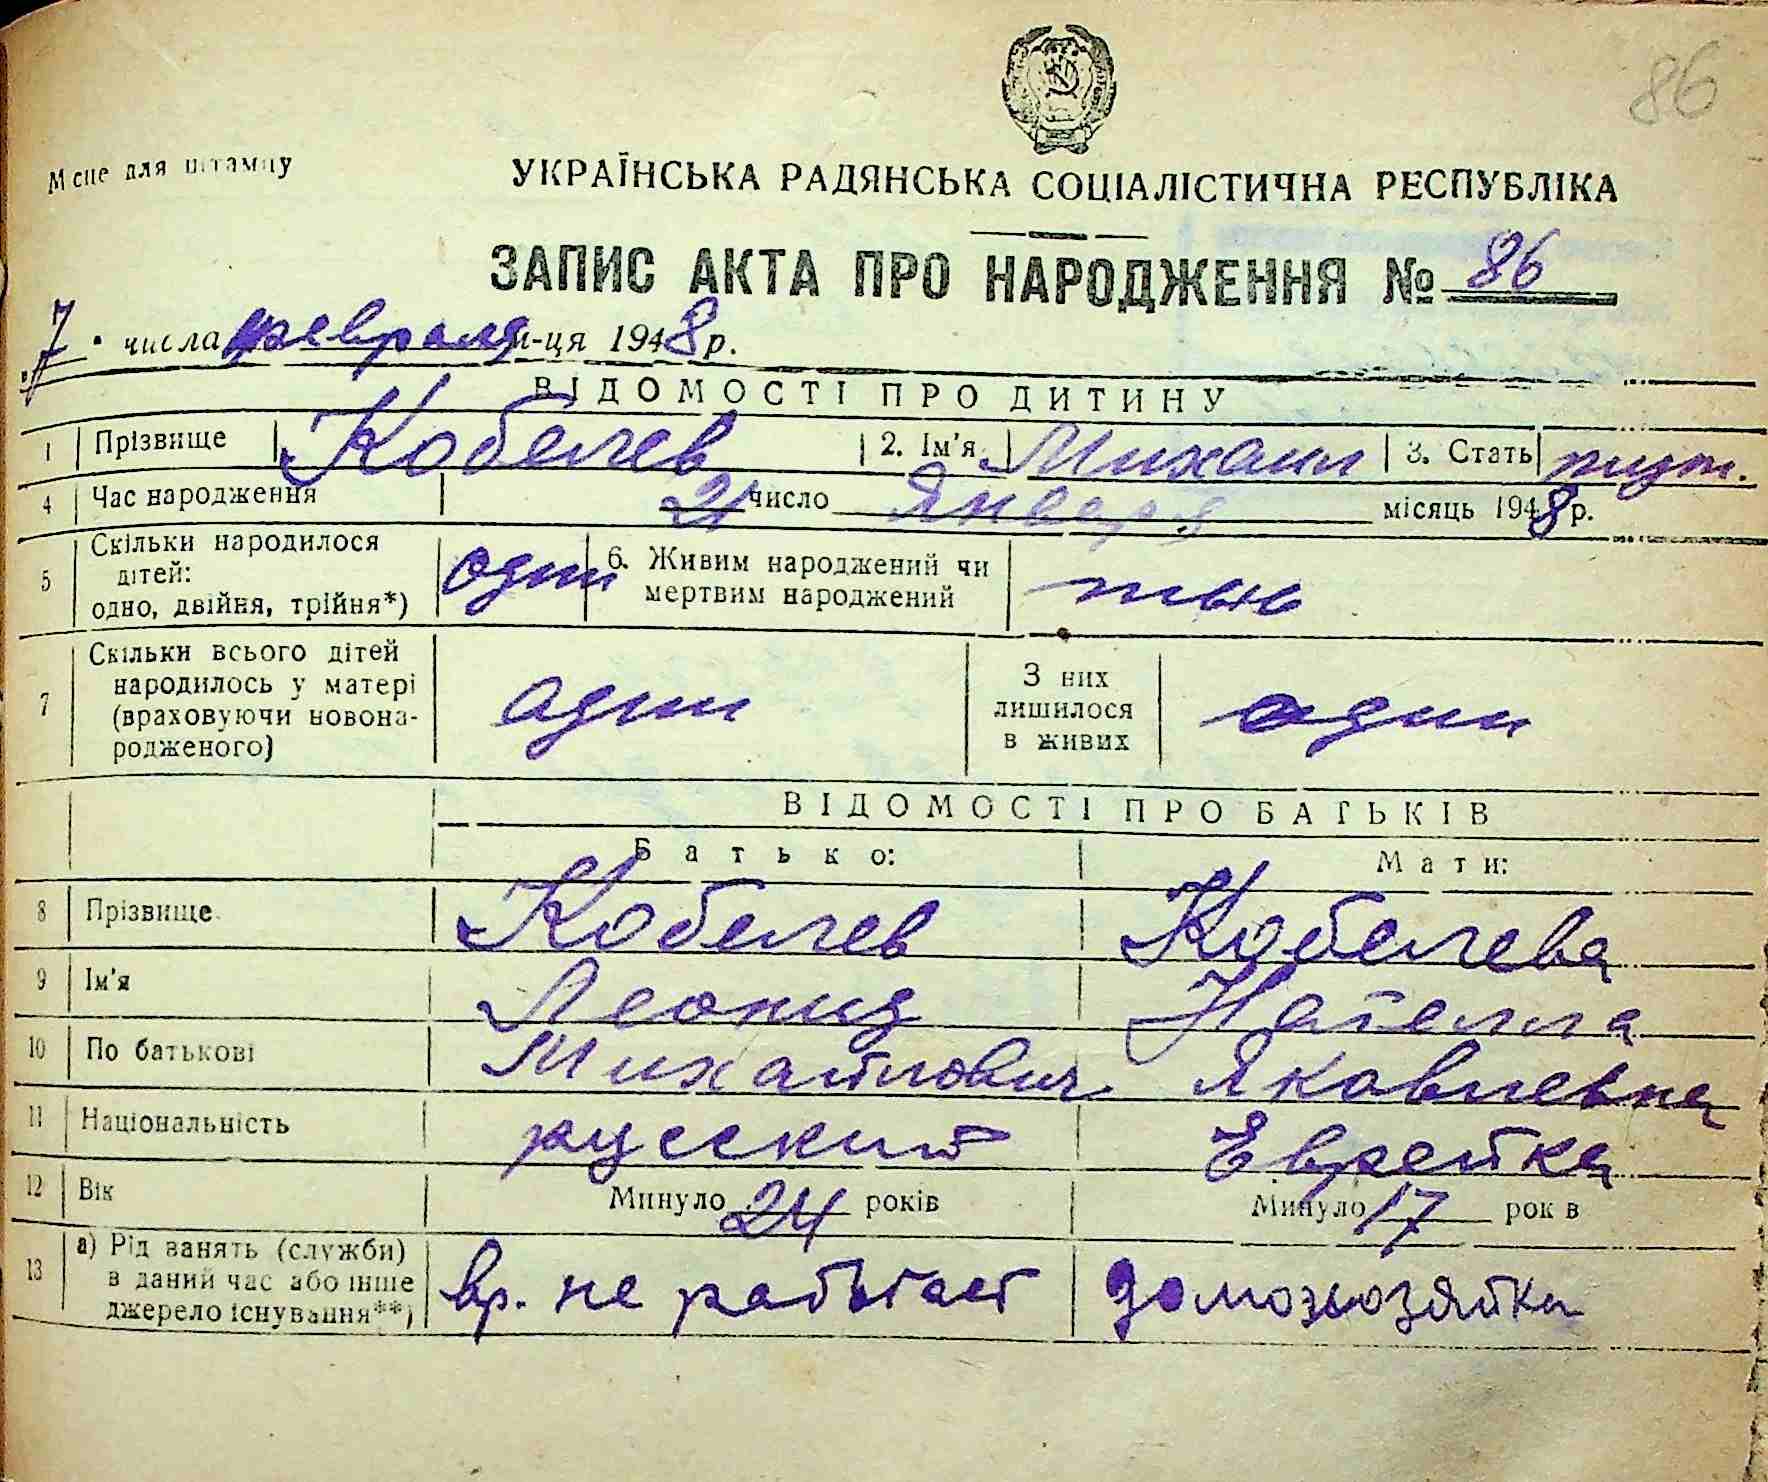 86
Місце для штампу
УКРАЇНСЬКА РАДЯНСЬКА СОЦІАЛІСТИЧНА РЕСПУБЛІКА
ЗАПИС АКТА ПРО НАРОДЖЕННЯ № 86
"7" числа февраля м-ця 1948 р.
ВІДОМОСТІ ПРО ДИТИНУ
1 Прізвище Кобелев 2. Ім'я Михаил 3. Стать муж.
4 Час народження 21 число Января місяць 1948 р.
5 Скільки народилося дітей: одно, двійня, трійня*) один 6. Живим народжений чи мертвим народжений живой
7 Скільки всього дітей народилось у матері (враховуючи новонародженого) один З них лишилося в живих один
ВІДОМОСТІ ПРО БАТЬКІВ
Батько: Мати:
8 Прізвище Кобелев Кобелева
9 Ім'я Леонид Нателла
10 По батькові Михайлович Яковлевна
11 Національність русский Еврейка
12 Вік Минуло 24 років Минуло 17 років
13 а) Рід занять (служби) в даний час або інше джерело існування**) вр. не работает домохозяйка